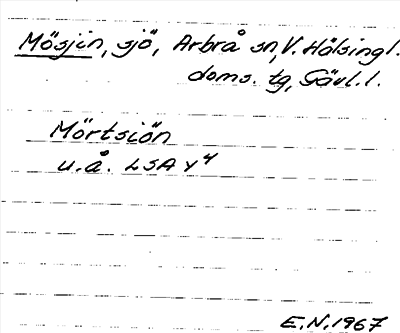 Mösjön, sjö, Arbrå sn, V. Hälsingl.
doms. tg, Gävl. l.
Mörtsiön
u.å. LSA Y4
E.N. 1967